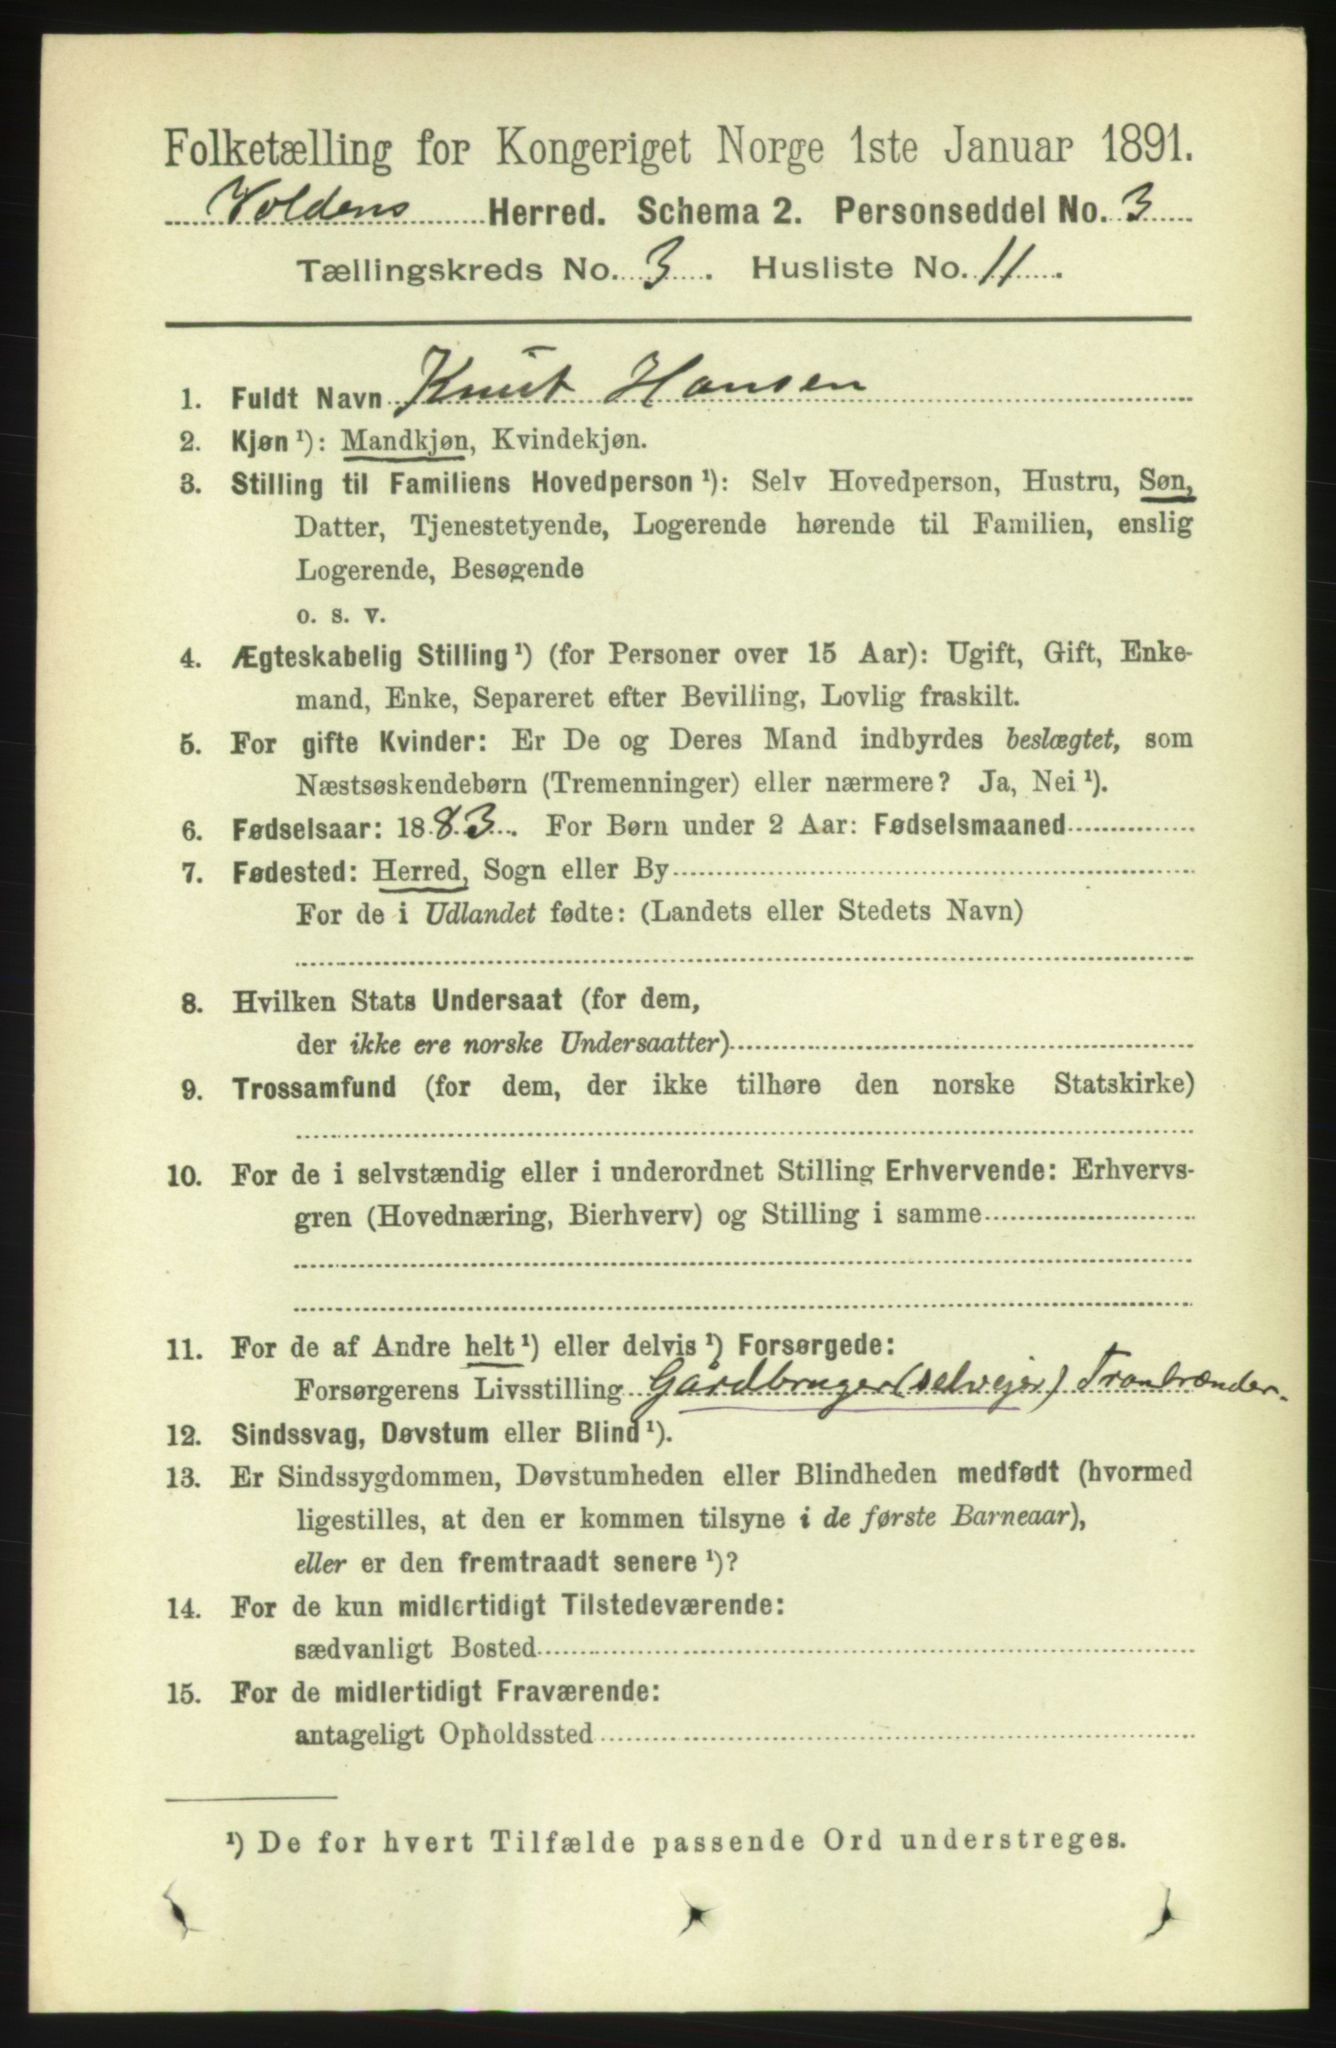 Folketælling for Kongeriget Norge 1ste Januar 1891.
Voldens Herred. Schema 2. Personseddel No. 3
Tællingskreds No. 3. Husliste No. 11.
1. Fuldt Navn Knut Hansen
2. Kjøn ¹): Mandkjøn, Kvindekjøn.
3. Stilling til Familiens Hovedperson ¹): Selv Hovedperson, Hustru, Søn,
Datter, Tjenestetyende, Logerende hørende til Familien, enslig
Logerende, Besøgende
o. s. v.
4. Ægteskabelig Stilling ¹) (for Personer over 15 Aar): Ugift, Gift, Enke-
mand, Enke, Separeret efter Bevilling, Lovlig fraskilt.
5. For gifte Kvinder: Er De og Deres Mand indbyrdes beslægtet, som
Næstsøskendebørn (Tremenninger) eller nærmere? Ja, Nei ¹).
6. Fødselsaar: 1883. For Børn under 2 Aar: Fødselsmaaned
7. Fødested: Herred, Sogn eller By
For de i Udlandet fødte: (Landets eller Stedets Navn)
8. Hvilken Stats Undersaat (for dem,
der ikke ere norske Undersaatter)
9. Trossamfund (for dem, der ikke tilhøre den norske Statskirke)
10. For de i selvstændig eller i underordnet Stilling Erhvervende: Erhvervs-
gren (Hovednæring, Bierhverv) og Stilling i samme
11. For de af Andre helt ¹) eller delvis ¹) Forsørgede:
Forsørgerens Livsstilling Gårdbruger (selvejer) Tranbrænder.
12. Sindssvag, Døvstum eller Blind ¹).
13. Er Sindssygdommen, Døvstumheden eller Blindheden medfødt (hvormed
ligestilles, at den er kommen tilsyne i de første Barneaar),
eller er den fremtraadt senere ¹)?
14. For de kun midlertidigt Tilstedeværende:
sædvanligt Bosted
15. For de midlertidigt Fraværende:
antageligt Opholdssted
¹) De for hvert Tilfælde passende Ord understreges.